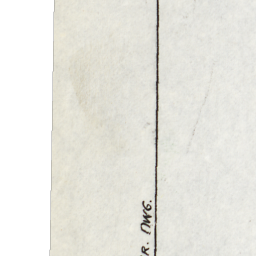 R. DWG.